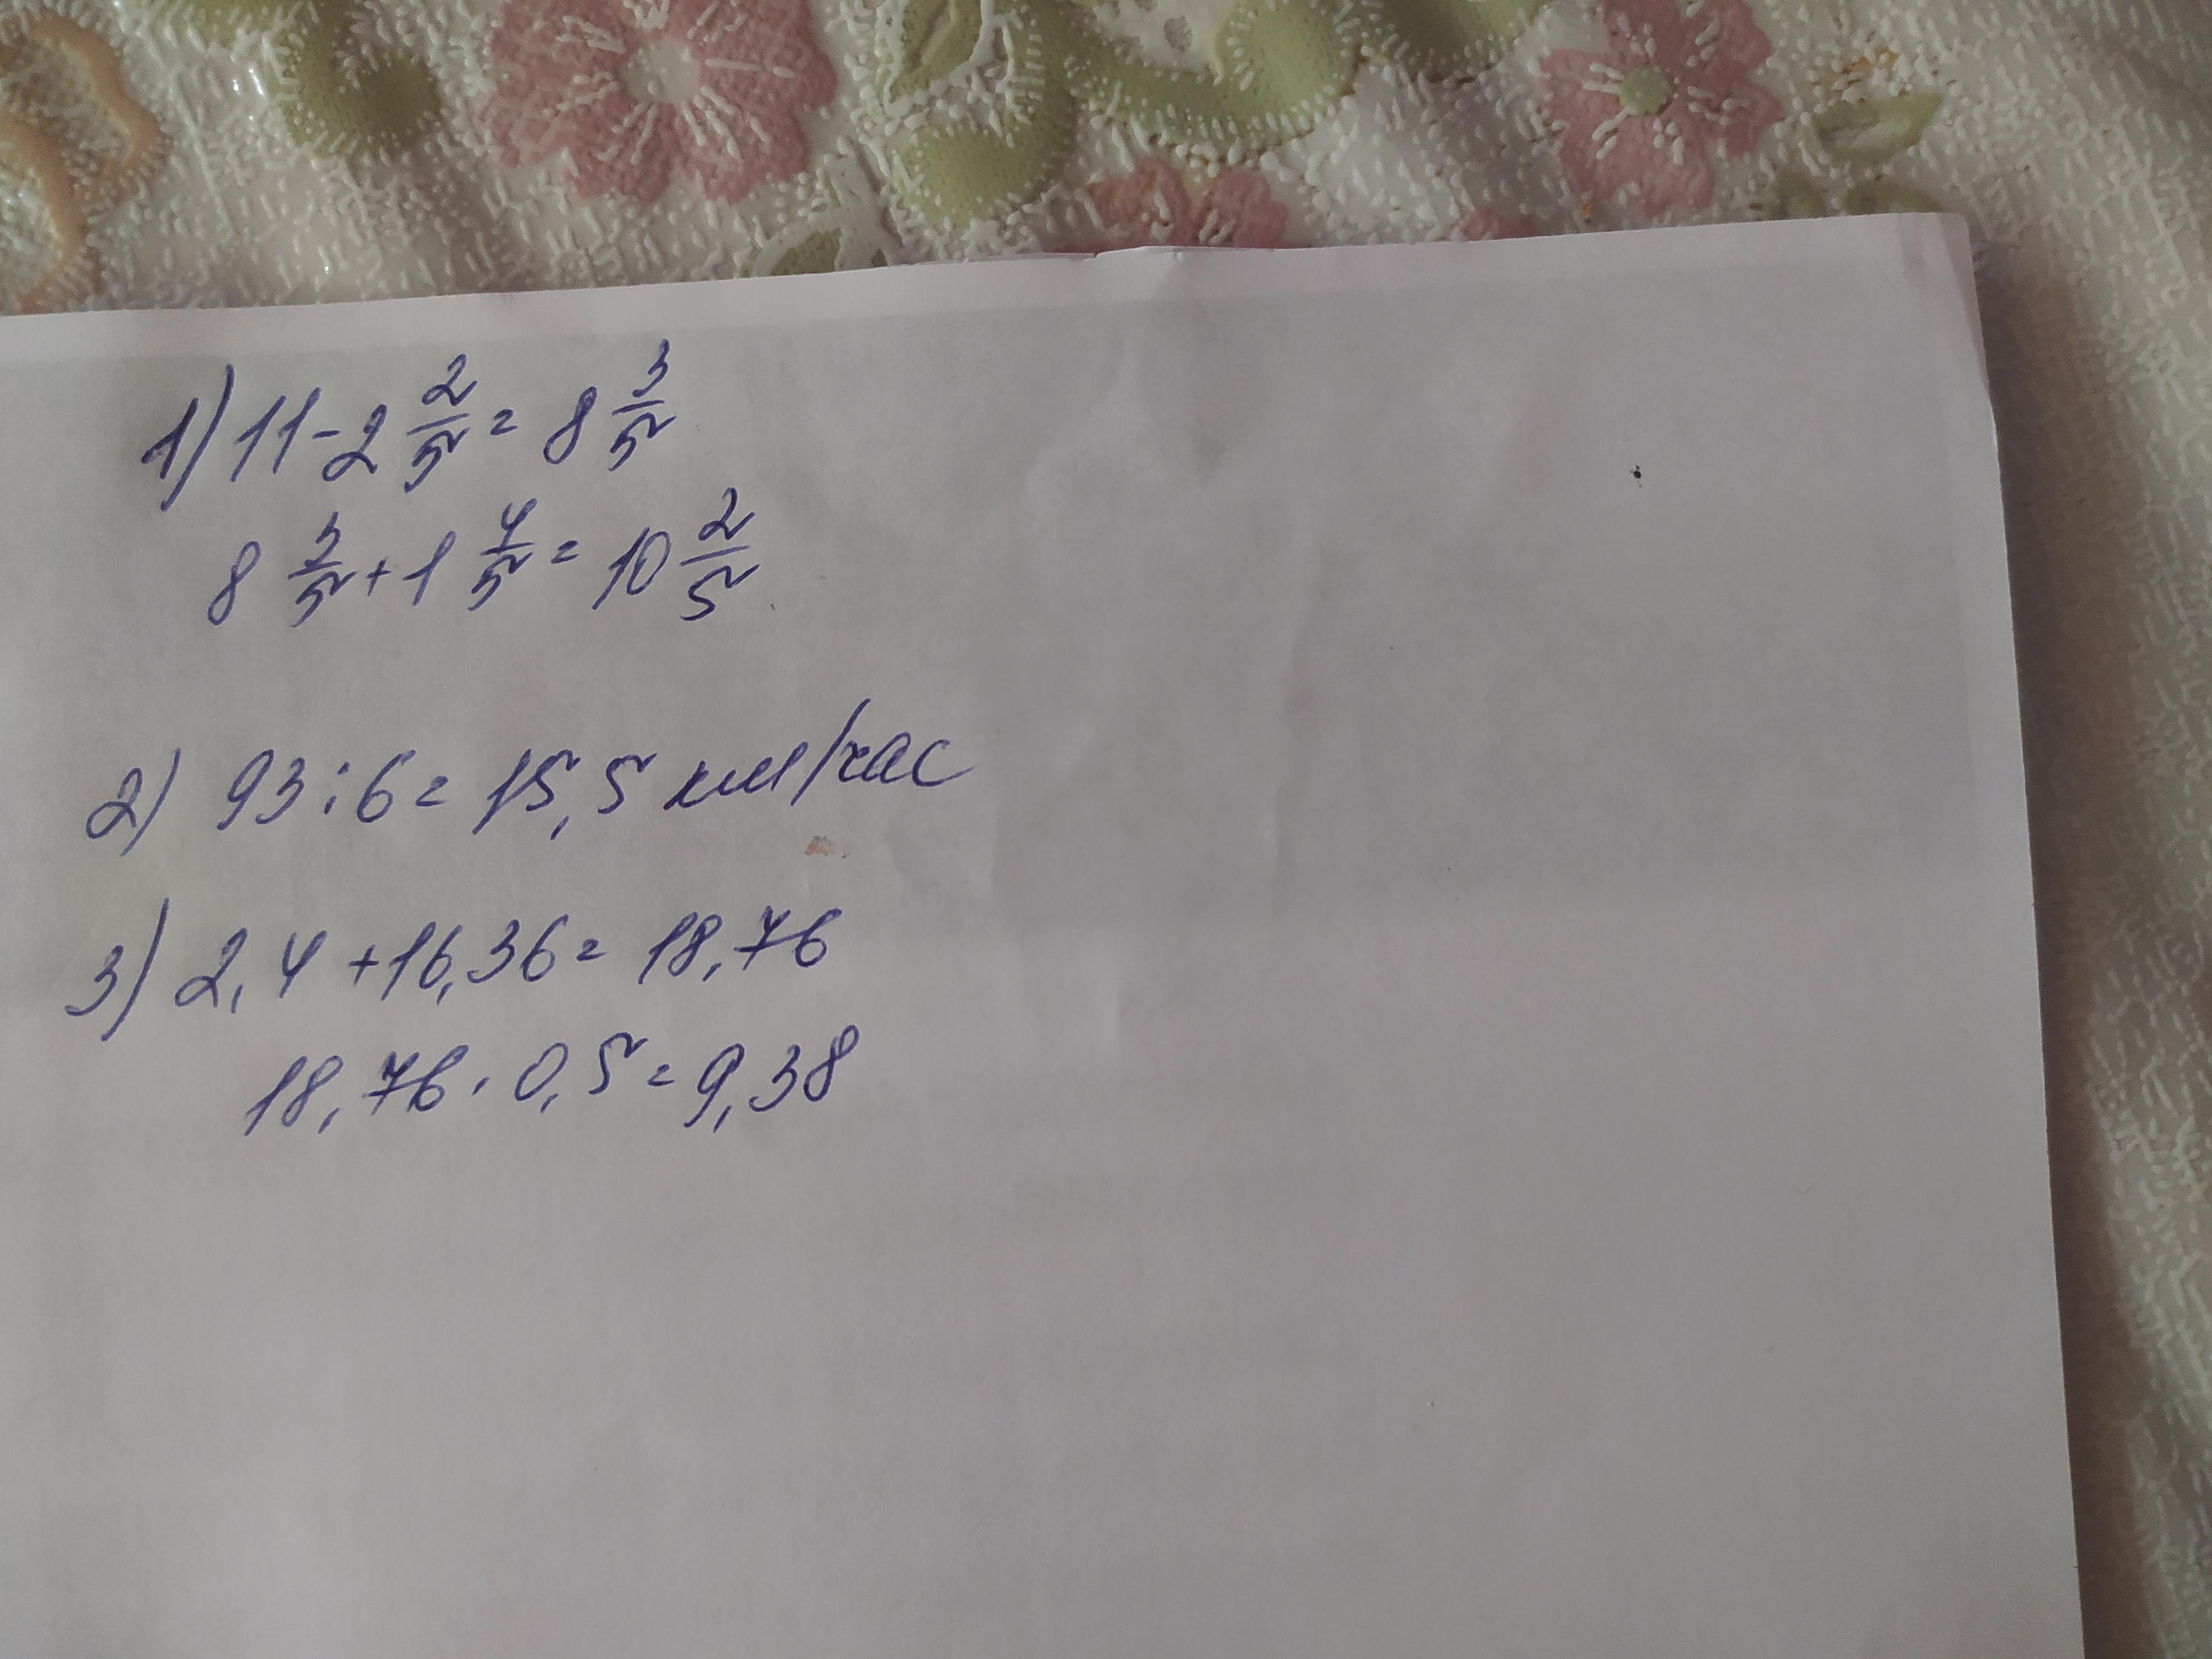 1) 11 - 2 2/5 = 8 3/5
8 3/5 + 1 4/5 = 10 2/5
2) 93 : 6 = 15,5 км/час
3) 2,4 + 16,36 = 18,76
18,76 · 0,5 = 9,38